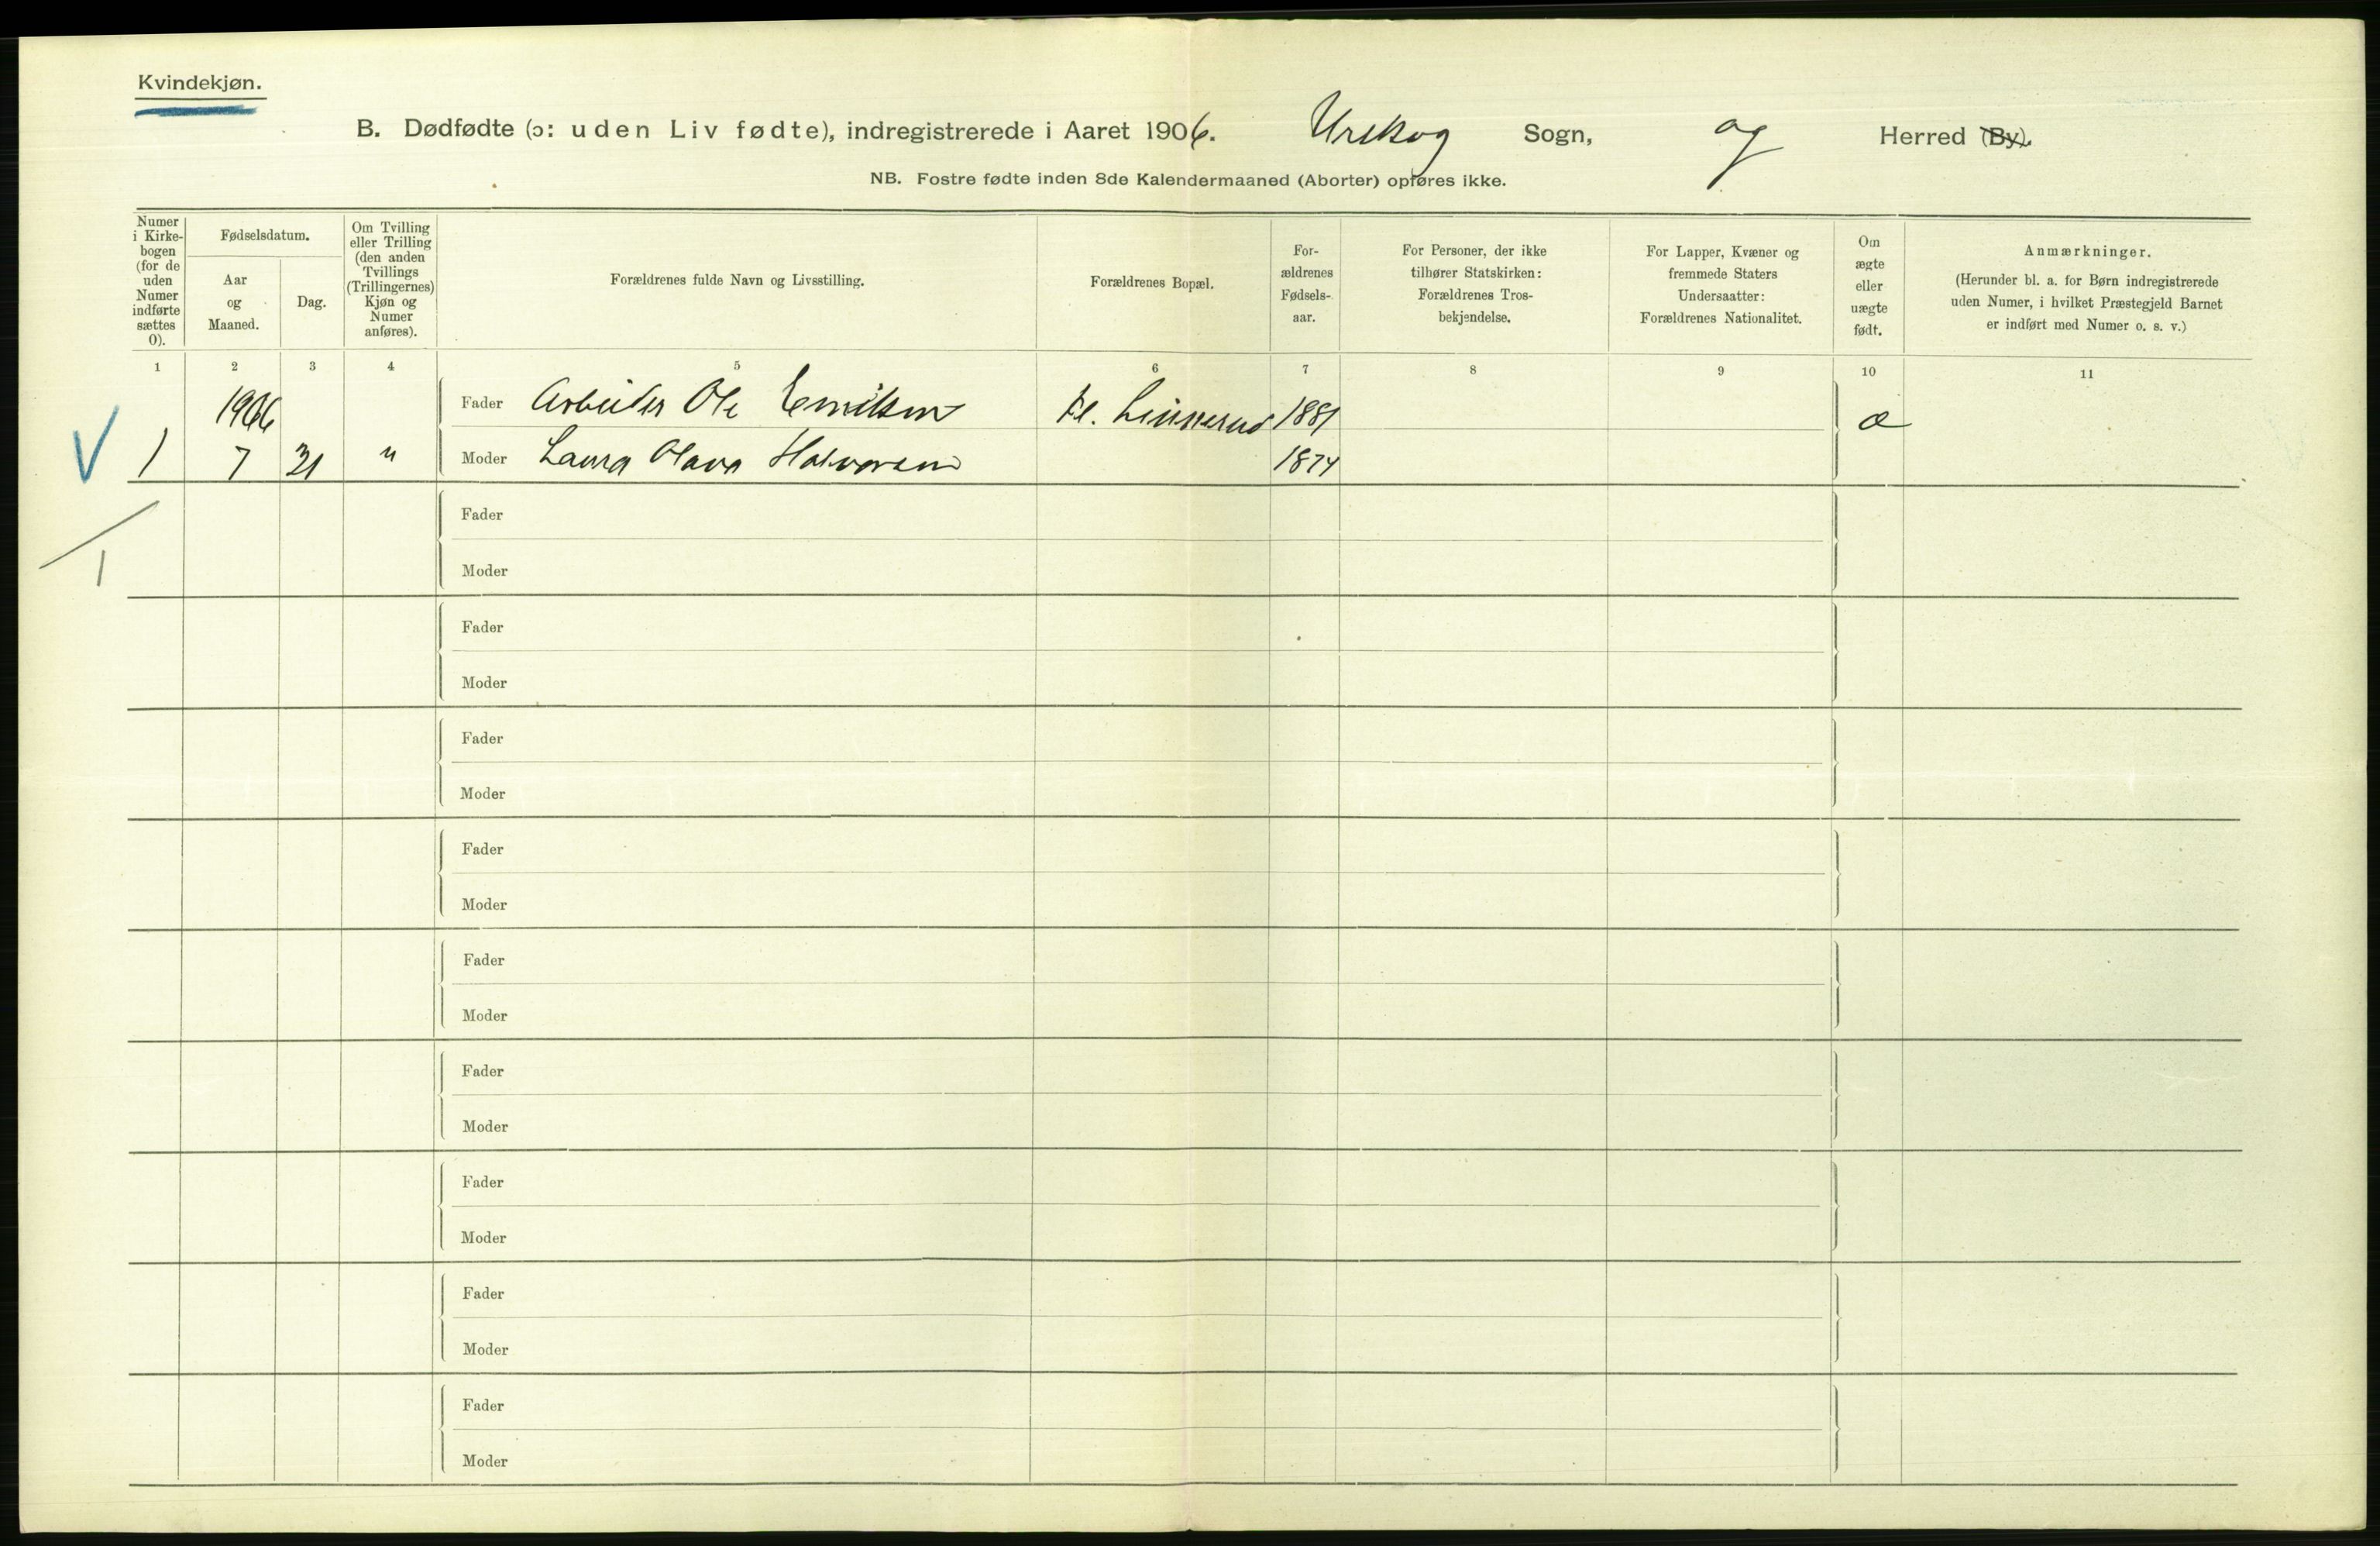 Kvindekjøn.
B. Dødfødte (ɔ: uden Liv fødte), indregistrerede i Aaret 1906. Urskog Sogn, og Herred (By).
NB. Fostre fødte inden 8de Kalendermaaned (Aborter) opføres ikke.
Numer i Kirke-bogen (for de uden Numer indførte sættes 0).
Fødselsdatum.
Aar og Maaned.
Dag.
Om Tvilling eller Trilling (den anden Tvillings (Trillingernes) Kjøn og Numer anføres).
Forældrenes fulde Navn og Livsstilling.
Forældrenes Bopæl.
For-ældrenes Fødsels-aar.
For Personer, der ikke tilhører Statskirken: Forældrenes Tros-bekjendelse.
For Lapper, Kvæner og fremmede Staters Undersaatter: Forældrenes Nationalitet.
Om ægte eller uægte født.
Anmærkninger.
(Herunder bl. a. for Børn indregistrerede uden Numer, i hvilket Præstegjeld Barnet er indført med Numer o. s. v.)
1 2 3 4 5 6 7 8 9 10 11
1906 Fader Arbeider Ole Emilsen 1881 æ
1 7 31 " Moder Laura Olava Halvorsen 1874
Fader
1
Moder
Fader
Moder
Fader
Moder
Fader
Moder
Fader
Moder
Fader
Moder
Fader
Moder
Fader
Moder
Fader
Moder